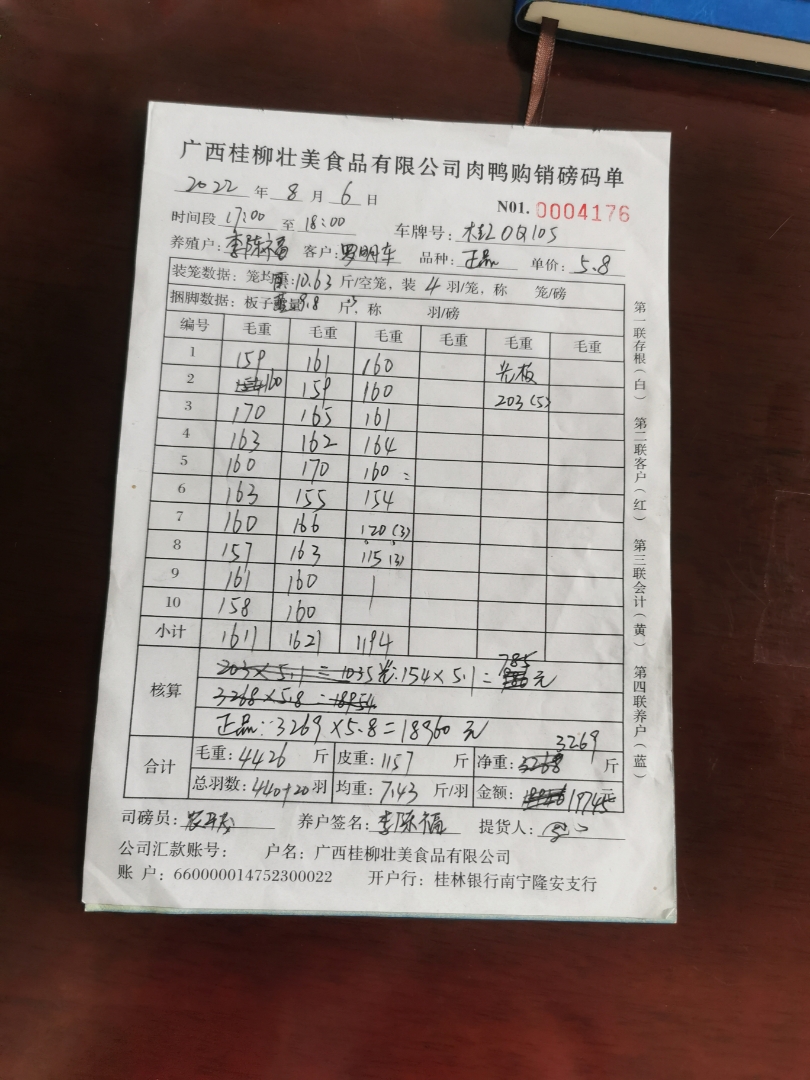 广西桂柳壮美食品有限公司肉鸭购销磅码单
2022 年 8 月 6 日
N01. 0004176
时间段 17:00 至 18:00 车牌号: 桂 0Q105
养殖户: 李陈福 客户: 罗明车 品种: 正品 单价: 5.8
装笼数据: 笼均重: 10.63 斤/空笼, 装 4 羽/笼, 称 笼/磅
捆脚数据: 板子重量 8.8 斤, 称 羽/磅
编号 毛重 毛重 毛重 毛重 毛重 毛重
1 159 161 160 光板
2 160 159 160 203 (5)
3 170 165 161
4 163 162 164
5 160 170 160
6 163 155 154
7 160 166 120 (3)
8 157 163 115 (3)
9 161 160
10 158 160
小计 1611 1621 1194
核算
203×5.1=1035 光:154×5.1=785元
3268×5.8=18954
正品:3269×5.8=18960 元
合计
毛重: 4426 斤 皮重: 1157 斤 净重: 3268 3269 斤
总羽数: 440+20 羽 均重: 7.43 斤/羽 金额: 19745 元
司磅员: 养户签名: 李陈福 提货人:
公司汇款账号: 户名: 广西桂柳壮美食品有限公司
账 户: 660000014752300022 开户行: 桂林银行南宁隆安支行
第一联存根(白) 第二联客户(红) 第三联会计(黄) 第四联养户(蓝)